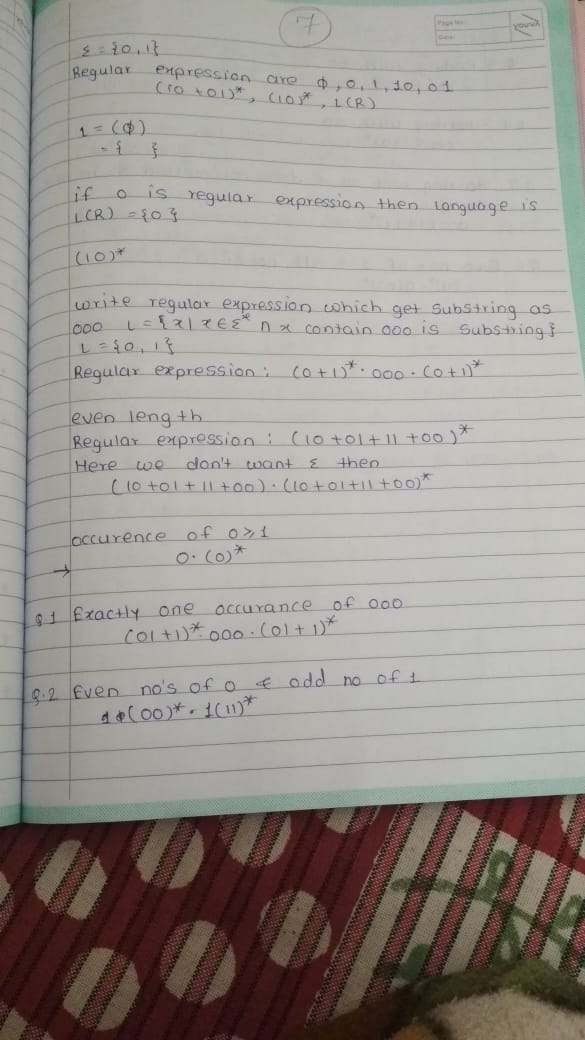 7
Page No.
Date:
YOUVA
Σ = {0, 1}
Regular expression are φ, 0, 1, 10, 01
(10 + 01)*, (10)*, L(R)
1 = (φ)
= { }
if 0 is regular expression then language is
L(R) = {0}
(10)*
write regular expression which get substring as
000 L = {x | x ∈ Σ* n x contain 000 is substring}
L = {0, 1}
Regular expression : (0+1)* . 000 . (0+1)*
even length
Regular expression : (10 +01+ 11 +00)*
Here we don't want Σ then
(10 +01 + 11 +00) . (10 +01+11 +00)*
occurence of 0 ≥ 1
→ 0. (0)*
Q.1 Exactly one occurance of 000
(01 +1)*. 000 . (01 + 1)*
Q.2 Even no's of 0 & odd no of 1
(00)* . 1(11)*